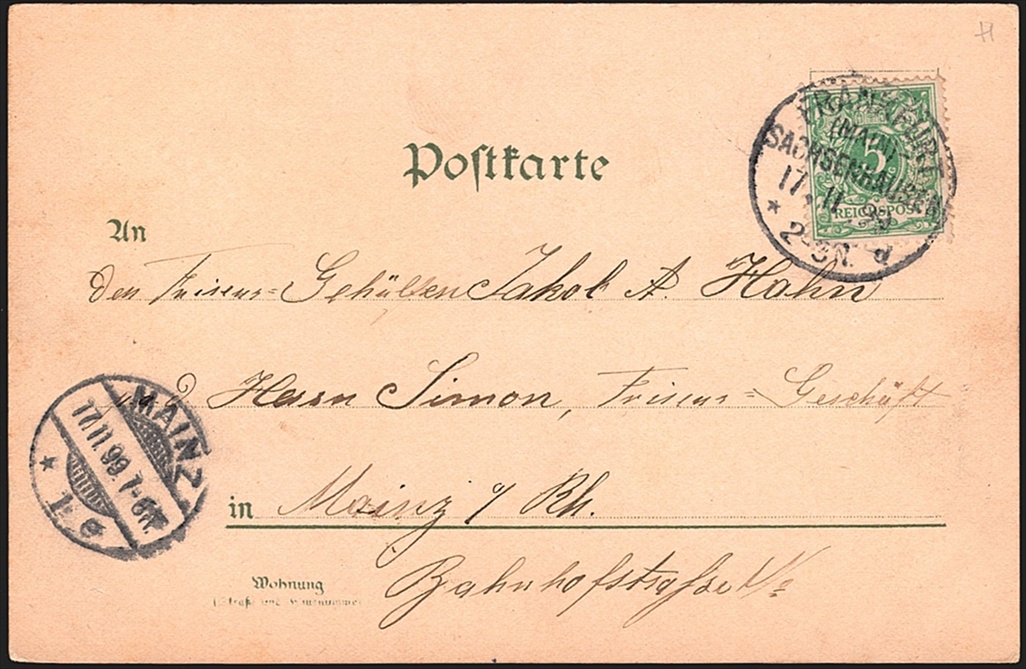 Postkarte
FRANKFURT
(MAIN)
SACHSENHAUSEN
17 11
2-3N. d
5
REICHSPOST
An
den Friseur=Gehülfen Jakob A. Hahn
Herrn Simon, Friseur=Geschäft
MAINZ
17.11.99.7-8N.
1. e
in Mainz a/ Rh.
Bahnhofstraße
Wohnung
(Straße und Hausnummer)